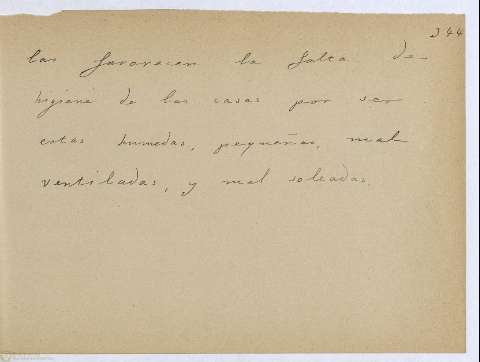 344
las favorecen la falta de
higiene de las casas por ser
estas humedas, pequeñas, mal
ventiladas, y mal soleadas.